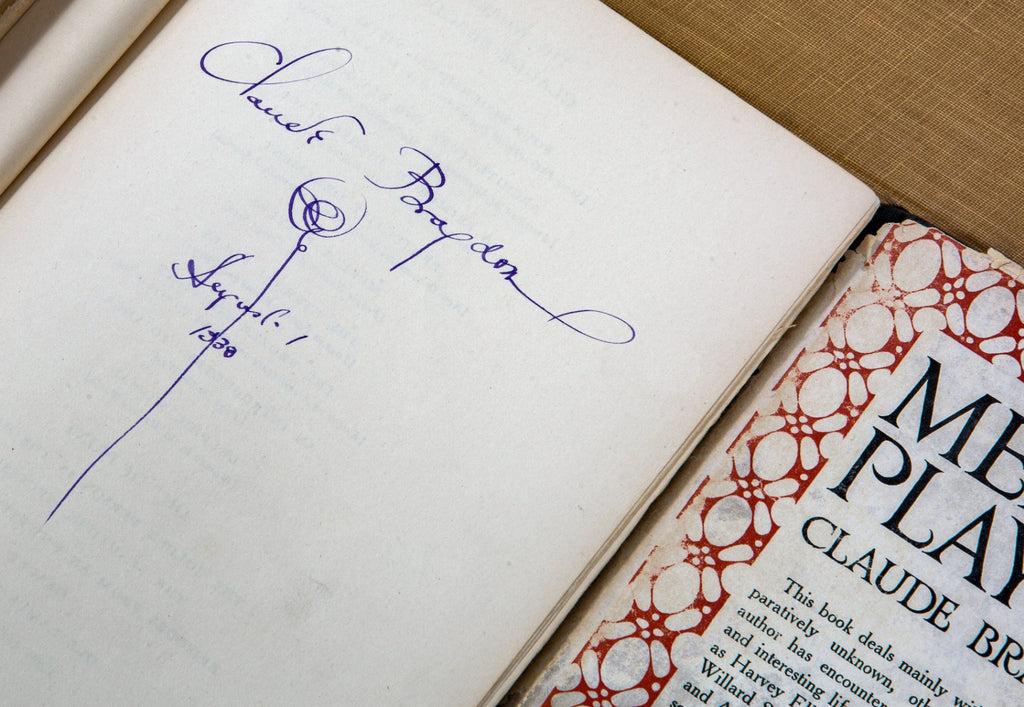 Claude Bragdon
August 1
ME
PLAY
CLAUDE BRA
This book deals mainly wi
paratively unknown, oth
author has encounter
and interesting life
as Harvey Ell
Willard
and A